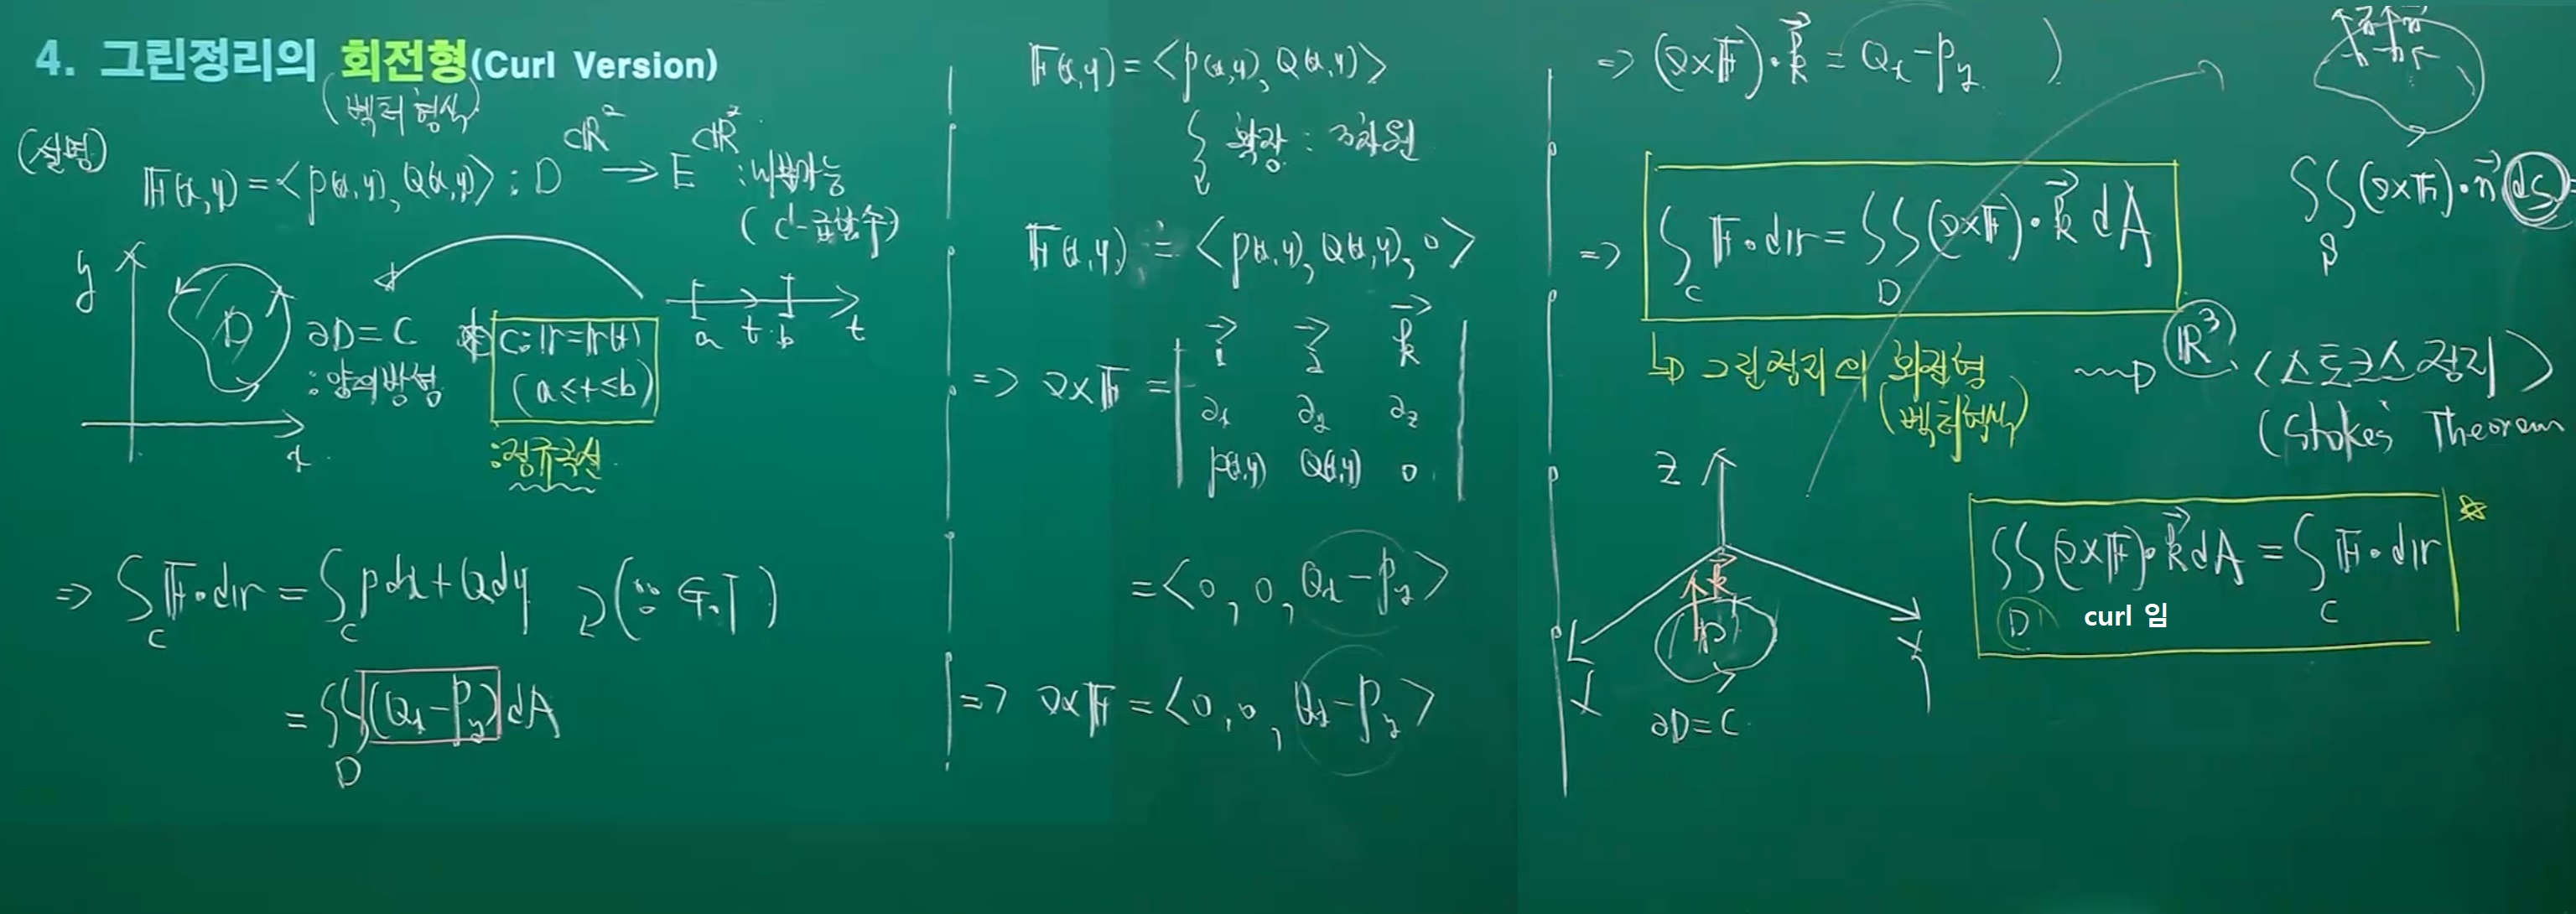 4. 그린정리의 회전형(Curl Version)
(벡터형식)
(설명)
𝔽(x,y) = <P(x,y), Q(x,y)> : D ⊂ℝ² → E ⊂ℝ² : 미분가능
(C¹-급함수)
y
D
∂D = C
: 양의방향
x
C : 𝕣 = 𝕣(t)
(a ≤ t ≤ b)
: 정규곡선
a t b t
⇒ ∫_C 𝔽·d𝕣 = ∫_C Pdx + Qdy (∵ G.T)
= ∬_D (Q_x - P_y) dA
𝔽(x,y) = <P(x,y), Q(x,y)>
확장 : 3차원
𝔽(x,y) = <P(x,y), Q(x,y), 0>
⇒ ∇×𝔽 = | i⃗ j⃗ k⃗
∂_x ∂_y ∂_z
P(x,y) Q(x,y) 0 |
= <0, 0, Q_x - P_y>
⇒ ∇×𝔽 = <0, 0, Q_x - P_y>
⇒ (∇×𝔽)·k⃗ = Q_x - P_y )
⇒ ∫_C 𝔽·d𝕣 = ∬_D (∇×𝔽)·k⃗ dA
↳ 그린정리의 회전형
(벡터형식)
ℝ³ <스토크스정리>
(Stokes' Theorem
n⃗ n⃗
∬_S (∇×𝔽)·n⃗ dS =
z
k⃗
D
x
y
∂D = C
∬_D (∇×𝔽)·k⃗ dA = ∫_C 𝔽·d𝕣
curl 임